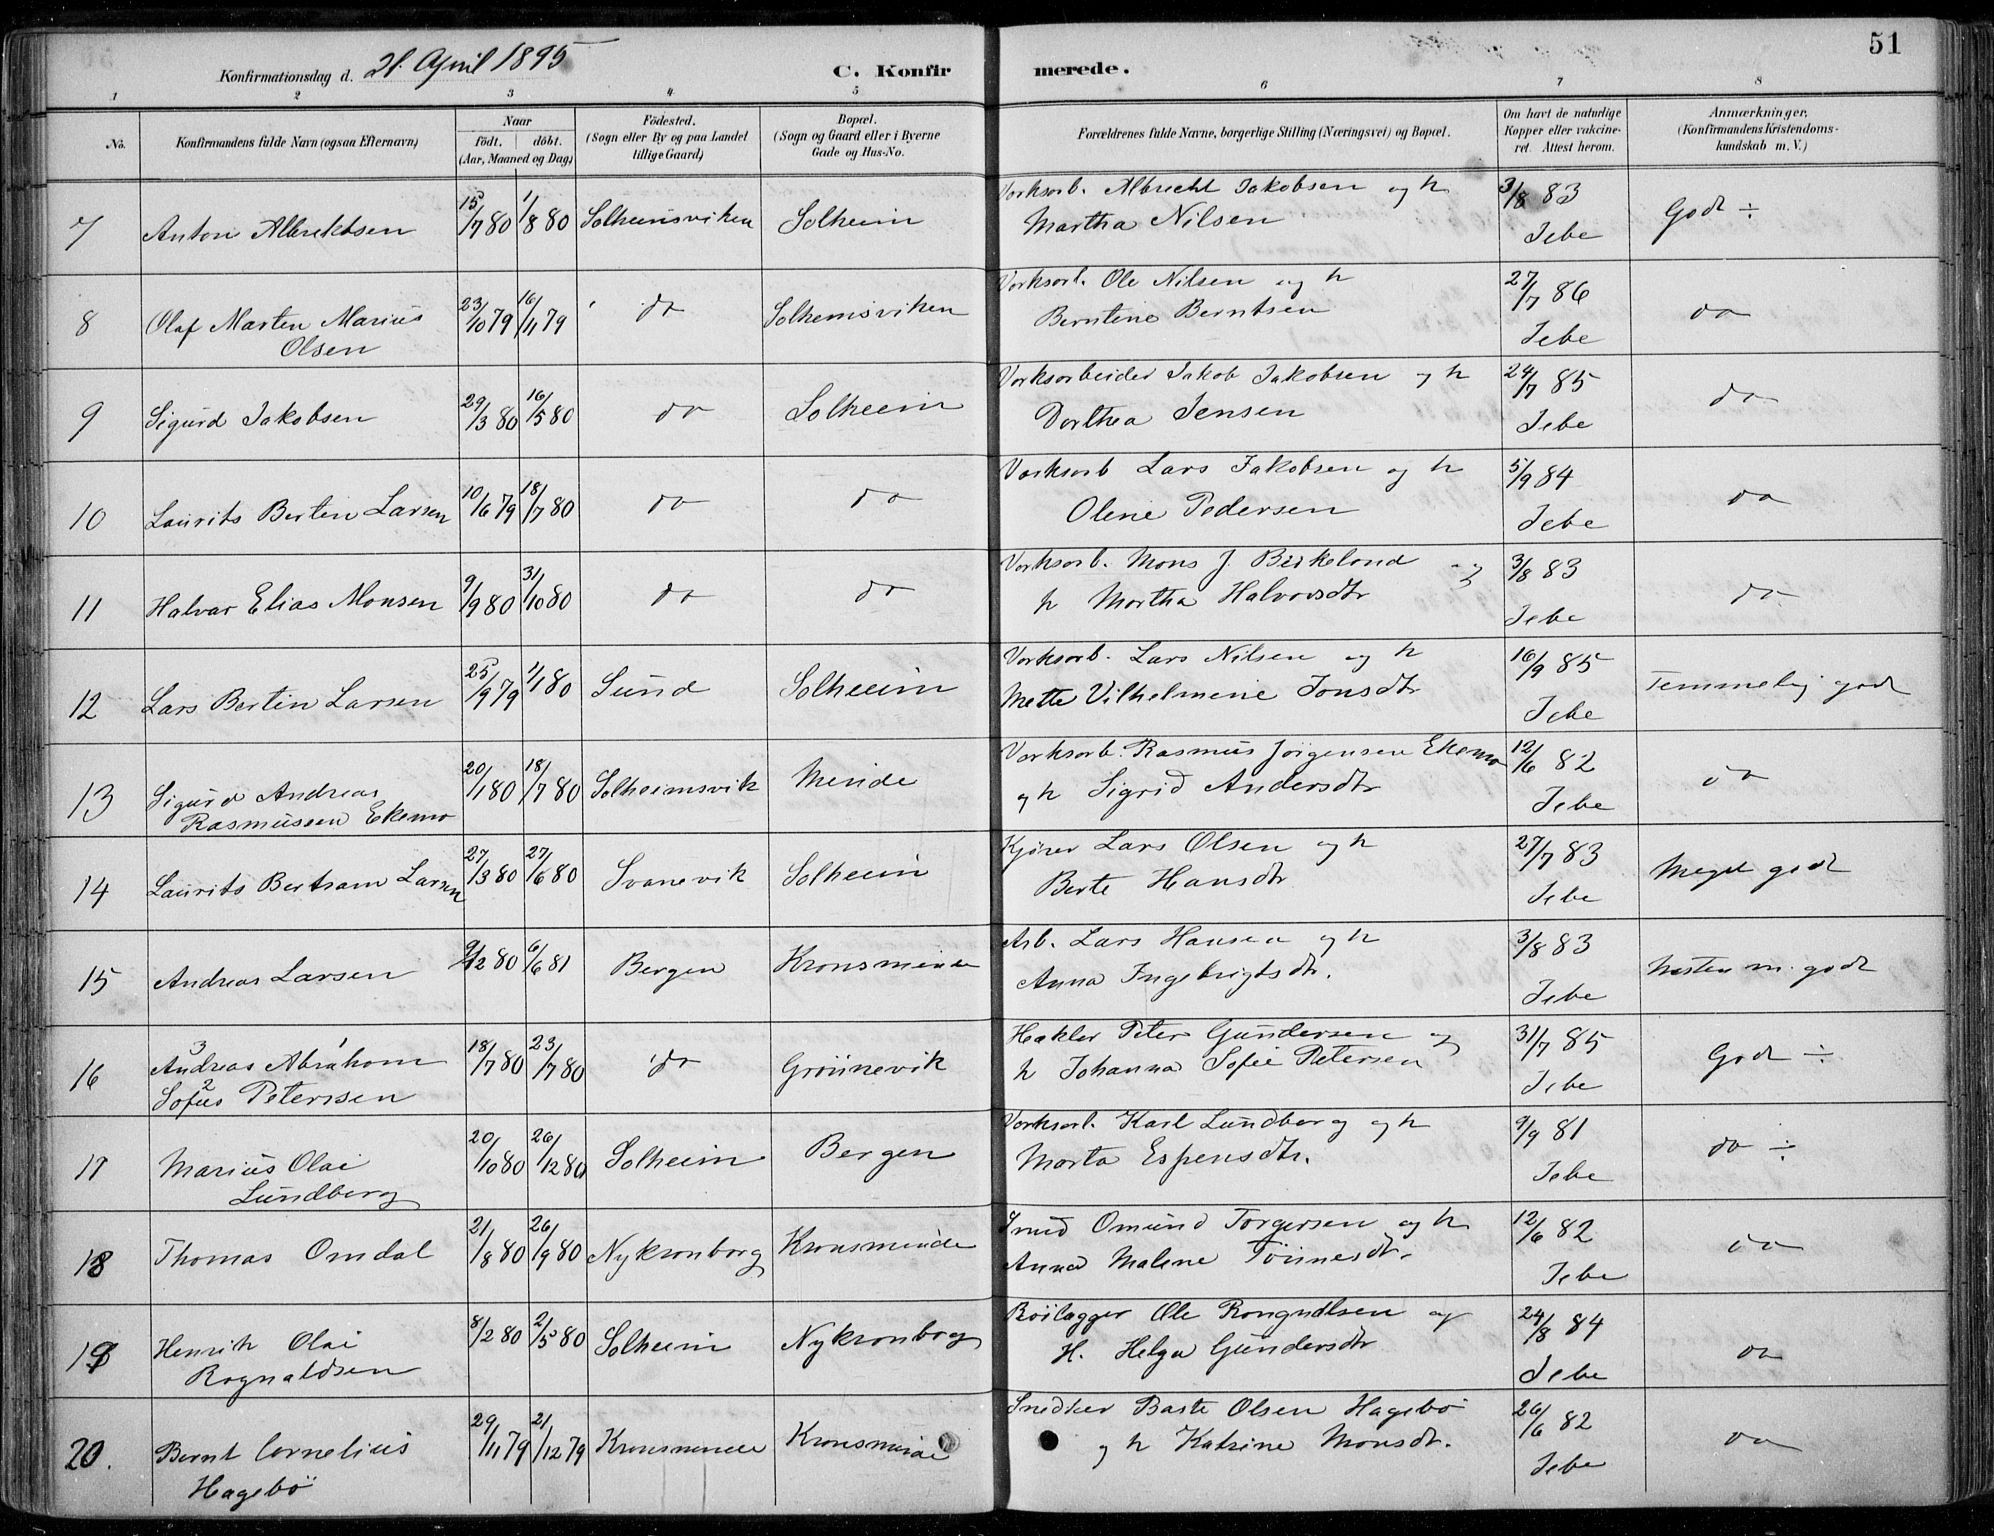 Konfirmationsdag d. 21. April 1895
C. Konfirmerede.
51
1 2 3 4 5 6 7 8
No.
Konfirmandens fulde Navn (ogsaa Efternavn)
Naar
födt. döbt.
(Aar, Maaned og Dag)
Födested.
(Sogn eller By og paa Landet
tillige Gaard)
Bopæl.
(Sogn og Gaard eller i Byerne
Gade og Hus-No.
Forældrenes fulde Navne, borgerlige Stilling (Næringsvei) og Bopæl.
Om havt de naturlige
Kopper eller vakcine-
ret. Attest herom.
Anmærkninger.
(Konfirmandens Kristendoms-
kundskab m. V.)
7 Anton Albrektsen 15/7 80 1/8 80 Solheimsviken Solheim
Værksarb. Albrecht Jakobsen og h
Martha Nilsen
3/8 83
Jebe
Godt ÷
8 Olaf Marten Marius
Olsen
23/10 79 16/11 79 do Solhemsviken
Værksarb. Ole Nilsen og h
Berntine Berntsen
27/7 86
Jebe
do
9 Sigurd Jakobsen 29/3 80 16/5 80 do Solheim
Værksarbeider Jakob Jakobsen og h
Dorthea Jensen
24/7 85
Jebe
do
10 Laurits Bertin Larsen 10/6 79 18/7 80 do do
Værksarb Lars Jakobsen og h
Oline Pedersen
5/9 84
Jebe
do
11 Halvar Elias Monsen 9/9 80 31/10 80 do do
Værksarb. Mons J Birkeland og
h Martha Halvorsdtr
3/8 83
Jebe
do
12 Lars Bertin Larsen 25/9 79 1/1 80 Sund Solheim
Værksarb. Lars Nilsen og h
Mette Vilhelmine Jonsdtr
16/9 85
Jebe
Temmelig godt
13 Sigurd Andreas
Rasmussen Ekemo
20/1 80 18/7 80 Solheimsvik Minde
Værksarb. Rasmus Jörgensen Ekemo
og h Sigrid Andersdtr
12/6 82
Jebe
do
14 Laurits Bertram Larsen 27/3 80 27/6 80 Svanevik Solheim
Kjörer Lars Olsen og h
Berte Hansdtr
27/7 83
Jebe
Meget godt
15 Andreas Larsen 9/12 80 6/6 81 Bergen Kronsminde
Arb. Lars Hansen og h
Anna Ingebrigtsdtr.
3/8 83
Jebe
Næsten m. godt
16 3 Andreas 1 Abraham
2 Sofus Peterssen
18/7 80 23/7 80 do Grönnevik
Hekler Peter Gundersen og
h Johanna Sofie Petersen
31/7 85
Jebe
Godt ÷
17 Marius Olai
Lundberg
20/10 80 26/12 80 Solheim Bergen
Værksarb. Karl Lundberg og h
Marta Espensdtr.
9/9 81
Jebe
do ÷
18 Thomas Omdal 21/8 80 26/9 80 Nykronborg Kronsminde
Smed Omund Torgersen og h
Anna Malene Tönnesdtr.
12/6 82
Jebe
do
19 Henrik Olai
Rognaldsen
8/2 80 2/5 80 Solheim Nykronborg
Ole Rongndlsen og
H. Helga Gundersdtr
24/8 84
Jebe
do
20. Bernt Cornelius
Hagebö
29/11 79 21/12 79 Kronsminde Kronsminde
Snedker Baste Olsen Hagebö
og h Katrine Monsdtr.
26/6 82
Jebe
do